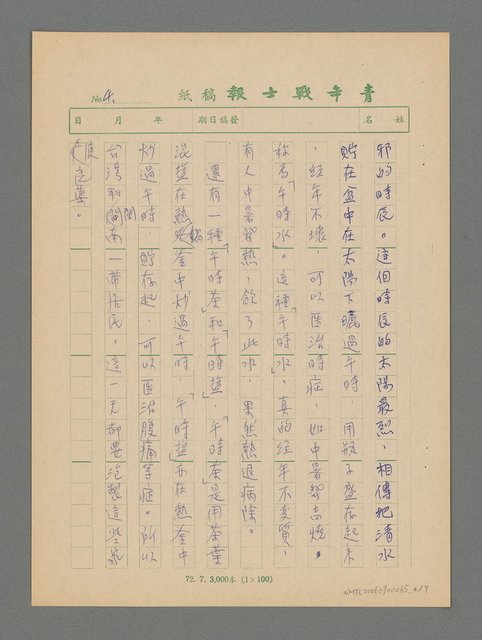 青年戰士報稿紙
No. 4.
姓名 發稿日期 年 月 日
邪的時辰。這個時辰的太陽最烈,相傳把清水
貯在盆中在太陽下曬過午時,用瓶子盛存起來
,經年不壞,可以医治時症,如中暑發高燒。
称為「午時水」。這種「午時水」,真的経年不变質,
有人中暑發熱,飲了此水,果然熱退病除。
還有一種「午時茶」和「午時塩」,「午時茶」是用茶葉
混塩在熱鍋釜中炒過午時,「午時塩」亦在熱釜中
炒過午時,貯存起,可以医治腹痛等症。所以
台湾和閩南一帶居民,這一天都要泡製這些家
庭薬。
72. 7. 3,000本 (1×100)
NMTL20060900065, 4/7